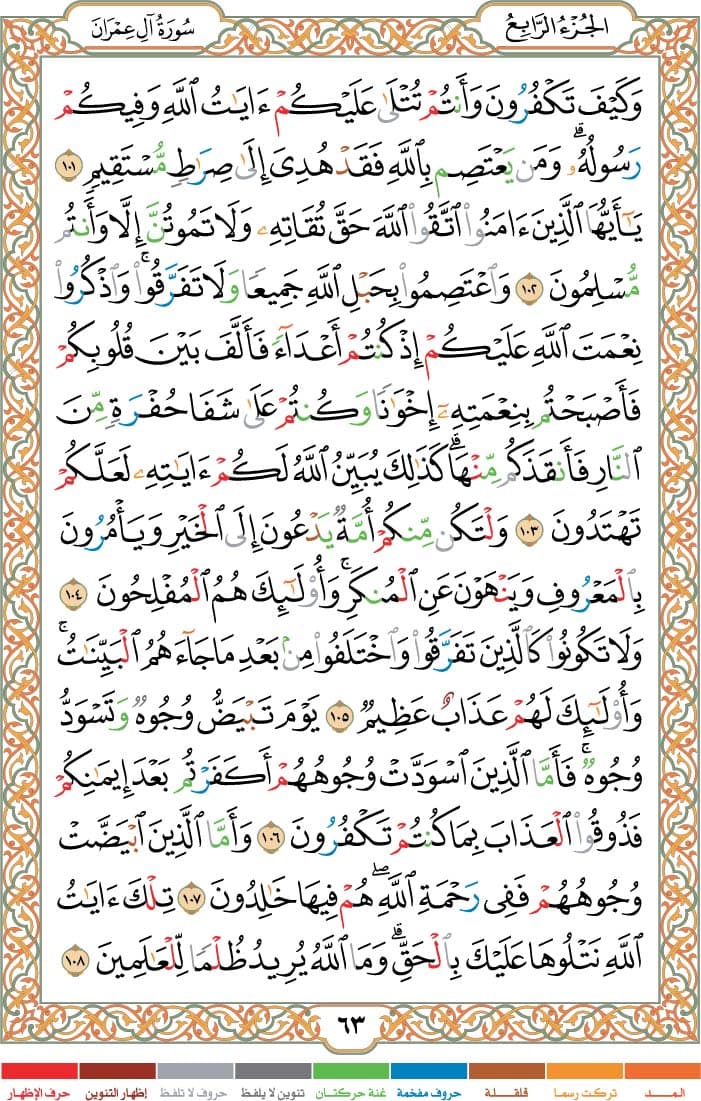 الجُزْءُ الرَّابِعُ
سُورَةُ آلِ عِمْرَان
وَكَيْفَ تَكْفُرُونَ وَأَنتُمْ تُتْلَىٰ عَلَيْكُمْ ءَايَٰتُ ٱللَّهِ وَفِيكُمْ
رَسُولُهُۥۗ وَمَن يَعْتَصِم بِٱللَّهِ فَقَدْ هُدِىَ إِلَىٰ صِرَٰطٍ مُّسْتَقِيمٍ ١٠١
يَٰٓأَيُّهَا ٱلَّذِينَ ءَامَنُوا۟ ٱتَّقُوا۟ ٱللَّهَ حَقَّ تُقَاتِهِۦ وَلَا تَمُوتُنَّ إِلَّا وَأَنتُم
مُّسْلِمُونَ ١٠٢ وَٱعْتَصِمُوا۟ بِحَبْلِ ٱللَّهِ جَمِيعًا وَلَا تَفَرَّقُوا۟ۚ وَٱذْكُرُوا۟
نِعْمَتَ ٱللَّهِ عَلَيْكُمْ إِذْ كُنتُمْ أَعْدَآءً فَأَلَّفَ بَيْنَ قُلُوبِكُمْ
فَأَصْبَحْتُم بِنِعْمَتِهِۦٓ إِخْوَٰنًا وَكُنتُمْ عَلَىٰ شَفَا حُفْرَةٍ مِّنَ
ٱلنَّارِ فَأَنقَذَكُم مِّنْهَاۗ كَذَٰلِكَ يُبَيِّنُ ٱللَّهُ لَكُمْ ءَايَٰتِهِۦ لَعَلَّكُمْ
تَهْتَدُونَ ١٠٣ وَلْتَكُن مِّنكُمْ أُمَّةٌ يَدْعُونَ إِلَى ٱلْخَيْرِ وَيَأْمُرُونَ
بِٱلْمَعْرُوفِ وَيَنْهَوْنَ عَنِ ٱلْمُنكَرِۚ وَأُو۟لَٰٓئِكَ هُمُ ٱلْمُفْلِحُونَ ١٠٤
وَلَا تَكُونُوا۟ كَٱلَّذِينَ تَفَرَّقُوا۟ وَٱخْتَلَفُوا۟ مِنۢ بَعْدِ مَا جَآءَهُمُ ٱلْبَيِّنَٰتُۚ
وَأُو۟لَٰٓئِكَ لَهُمْ عَذَابٌ عَظِيمٌ ١٠٥ يَوْمَ تَبْيَضُّ وُجُوهٌ وَتَسْوَدُّ
وُجُوهٌۚ فَأَمَّا ٱلَّذِينَ ٱسْوَدَّتْ وُجُوهُهُمْ أَكَفَرْتُم بَعْدَ إِيمَٰنِكُمْ
فَذُوقُوا۟ ٱلْعَذَابَ بِمَا كُنتُمْ تَكْفُرُونَ ١٠٦ وَأَمَّا ٱلَّذِينَ ٱبْيَضَّتْ
وُجُوهُهُمْ فَفِى رَحْمَةِ ٱللَّهِۖ هُمْ فِيهَا خَٰلِدُونَ ١٠٧ تِلْكَ ءَايَٰتُ
ٱللَّهِ نَتْلُوهَا عَلَيْكَ بِٱلْحَقِّۗ وَمَا ٱللَّهُ يُرِيدُ ظُلْمًا لِّلْعَٰلَمِينَ ١٠٨
٦٣
المــد تركت رسما قلقلة حروف مفخمة غنة حركتان تنوين لا يلفظ حروف لا تلفظ إظهار التنوين حرف الإظهار